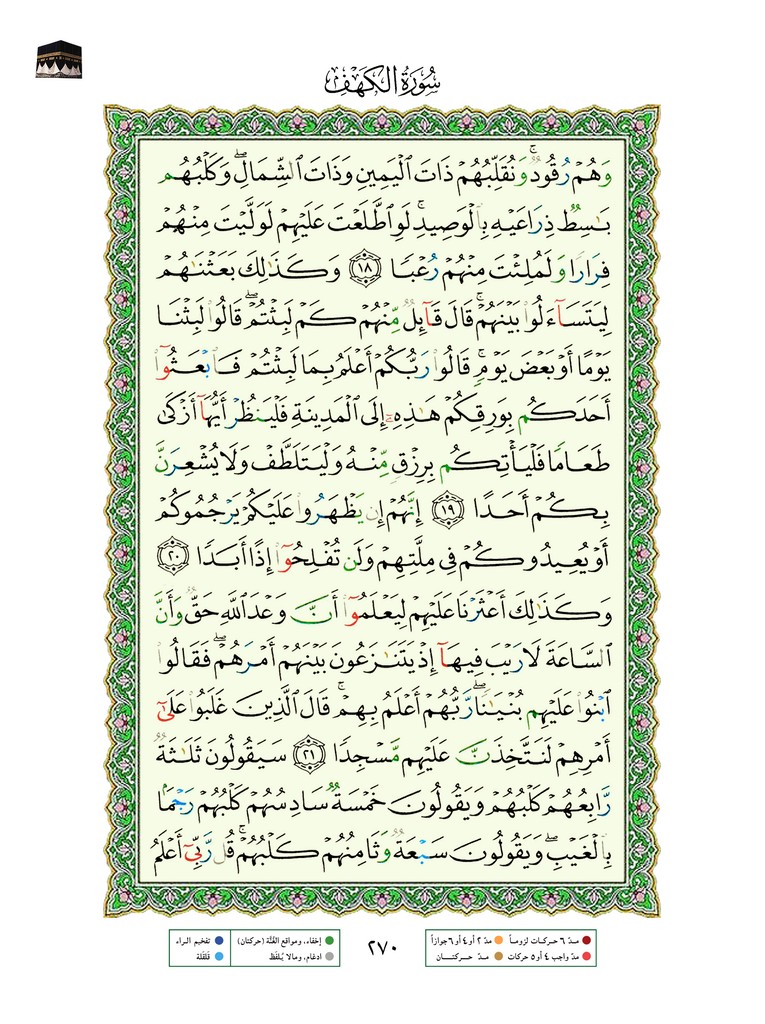 سُورَةُ الكَهْفِ
وَهُمْ رُقُودٌ ۚ وَنُقَلِّبُهُمْ ذَاتَ ٱلْيَمِينِ وَذَاتَ ٱلشِّمَالِ ۖ وَكَلْبُهُم
بَـٰسِطٌ ذِرَاعَيْهِ بِٱلْوَصِيدِ ۚ لَوِ ٱطَّلَعْتَ عَلَيْهِمْ لَوَلَّيْتَ مِنْهُمْ
فِرَارًا وَلَمُلِئْتَ مِنْهُمْ رُعْبًا ١٨ وَكَذَٰلِكَ بَعَثْنَـٰهُمْ
لِيَتَسَآءَلُوا۟ بَيْنَهُمْ ۚ قَالَ قَآئِلٌ مِّنْهُمْ كَمْ لَبِثْتُمْ ۖ قَالُوا۟ لَبِثْنَا
يَوْمًا أَوْ بَعْضَ يَوْمٍ ۚ قَالُوا۟ رَبُّكُمْ أَعْلَمُ بِمَا لَبِثْتُمْ فَٱبْعَثُوٓا۟
أَحَدَكُم بِوَرِقِكُمْ هَـٰذِهِۦٓ إِلَى ٱلْمَدِينَةِ فَلْيَنظُرْ أَيُّهَآ أَزْكَىٰ
طَعَامًا فَلْيَأْتِكُم بِرِزْقٍ مِّنْهُ وَلْيَتَلَطَّفْ وَلَا يُشْعِرَنَّ
بِكُمْ أَحَدًا ١٩ إِنَّهُمْ إِن يَظْهَرُوا۟ عَلَيْكُمْ يَرْجُمُوكُمْ
أَوْ يُعِيدُوكُمْ فِى مِلَّتِهِمْ وَلَن تُفْلِحُوٓا۟ إِذًا أَبَدًا ٢٠
وَكَذَٰلِكَ أَعْثَرْنَا عَلَيْهِمْ لِيَعْلَمُوٓا۟ أَنَّ وَعْدَ ٱللَّهِ حَقٌّ وَأَنَّ
ٱلسَّاعَةَ لَا رَيْبَ فِيهَآ إِذْ يَتَنَـٰزَعُونَ بَيْنَهُمْ أَمْرَهُمْ ۖ فَقَالُوا۟
ٱبْنُوا۟ عَلَيْهِم بُنْيَـٰنًا ۖ رَّبُّهُمْ أَعْلَمُ بِهِمْ ۚ قَالَ ٱلَّذِينَ غَلَبُوا۟ عَلَىٰٓ
أَمْرِهِمْ لَنَتَّخِذَنَّ عَلَيْهِم مَّسْجِدًا ٢١ سَيَقُولُونَ ثَلَـٰثَةٌ
رَّابِعُهُمْ كَلْبُهُمْ وَيَقُولُونَ خَمْسَةٌ سَادِسُهُمْ كَلْبُهُمْ رَجْمًۢا
بِٱلْغَيْبِ ۖ وَيَقُولُونَ سَبْعَةٌ وَثَامِنُهُمْ كَلْبُهُمْ ۚ قُل رَّبِّىٓ أَعْلَمُ
مدّ ٦ حركات لزوماً مدّ ٢ أو ٤ أو ٦ جوازاً
مدّ واجب ٤ أو ٥ حركات مدّ حركتان
٢٧٠
إخفاء، ومواقع الغُنَّة (حركتان) تفخيم الراء
ادغام، ومالا يُلفَظ قلقلة